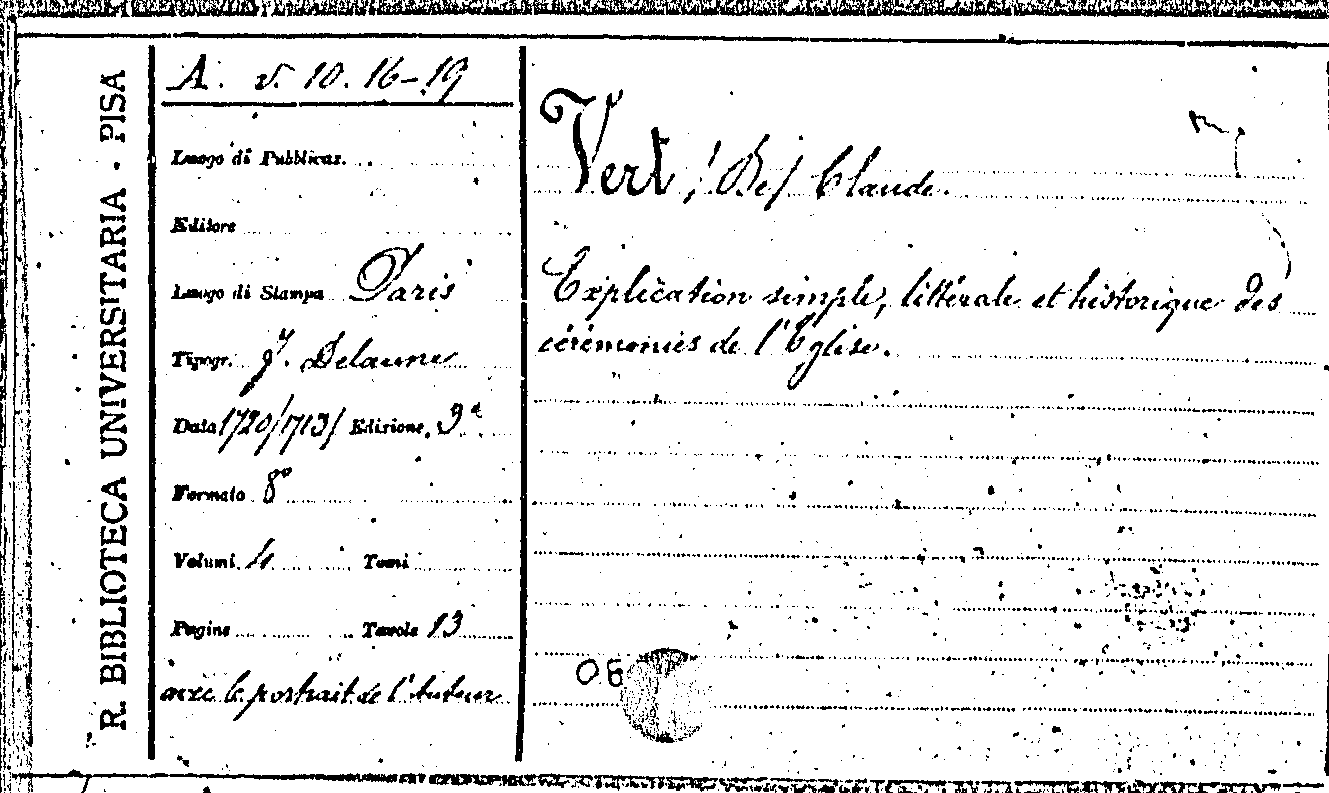 R. BIBLIOTECA UNIVERSITARIA · PISA
A. v. 10. 16-19
Luogo di Pubblicaz.
Editore
Luogo di Stampa Paris
Tipogr. J. Delaune
Data 1720/1713/ Edizione 3ª
Formato 8º
Volumi 4 Tomi
Pagine Tavole 13
avec le portrait de l'Auteur
Vert / De / Claude.
Explication simple, littérale et historique des
cérémonies de l'Eglise.